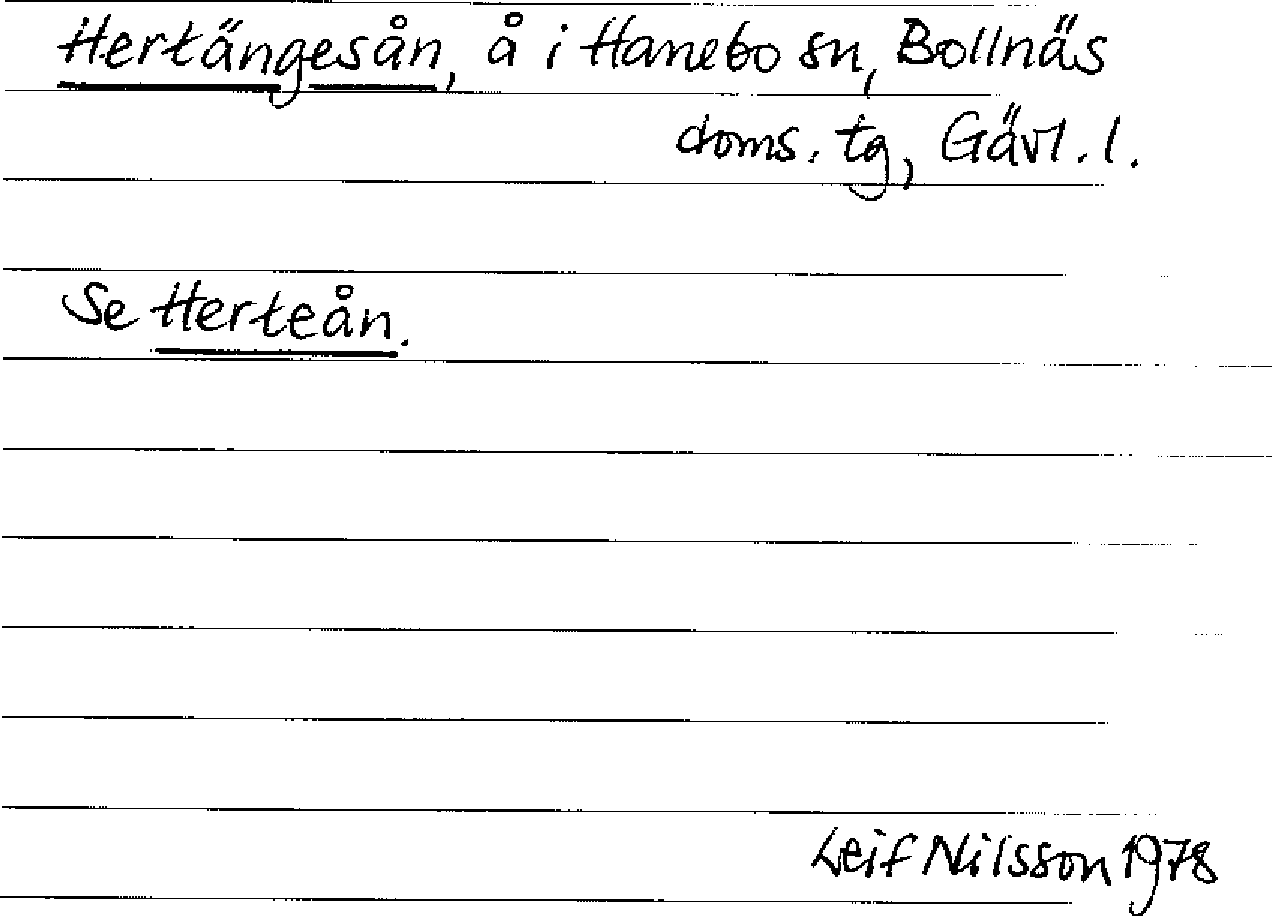 Hertängesån, å i Hanebo sn, Bollnäs
doms. tg, Gävl. l.
Se Herteån.
Leif Nilsson 1978